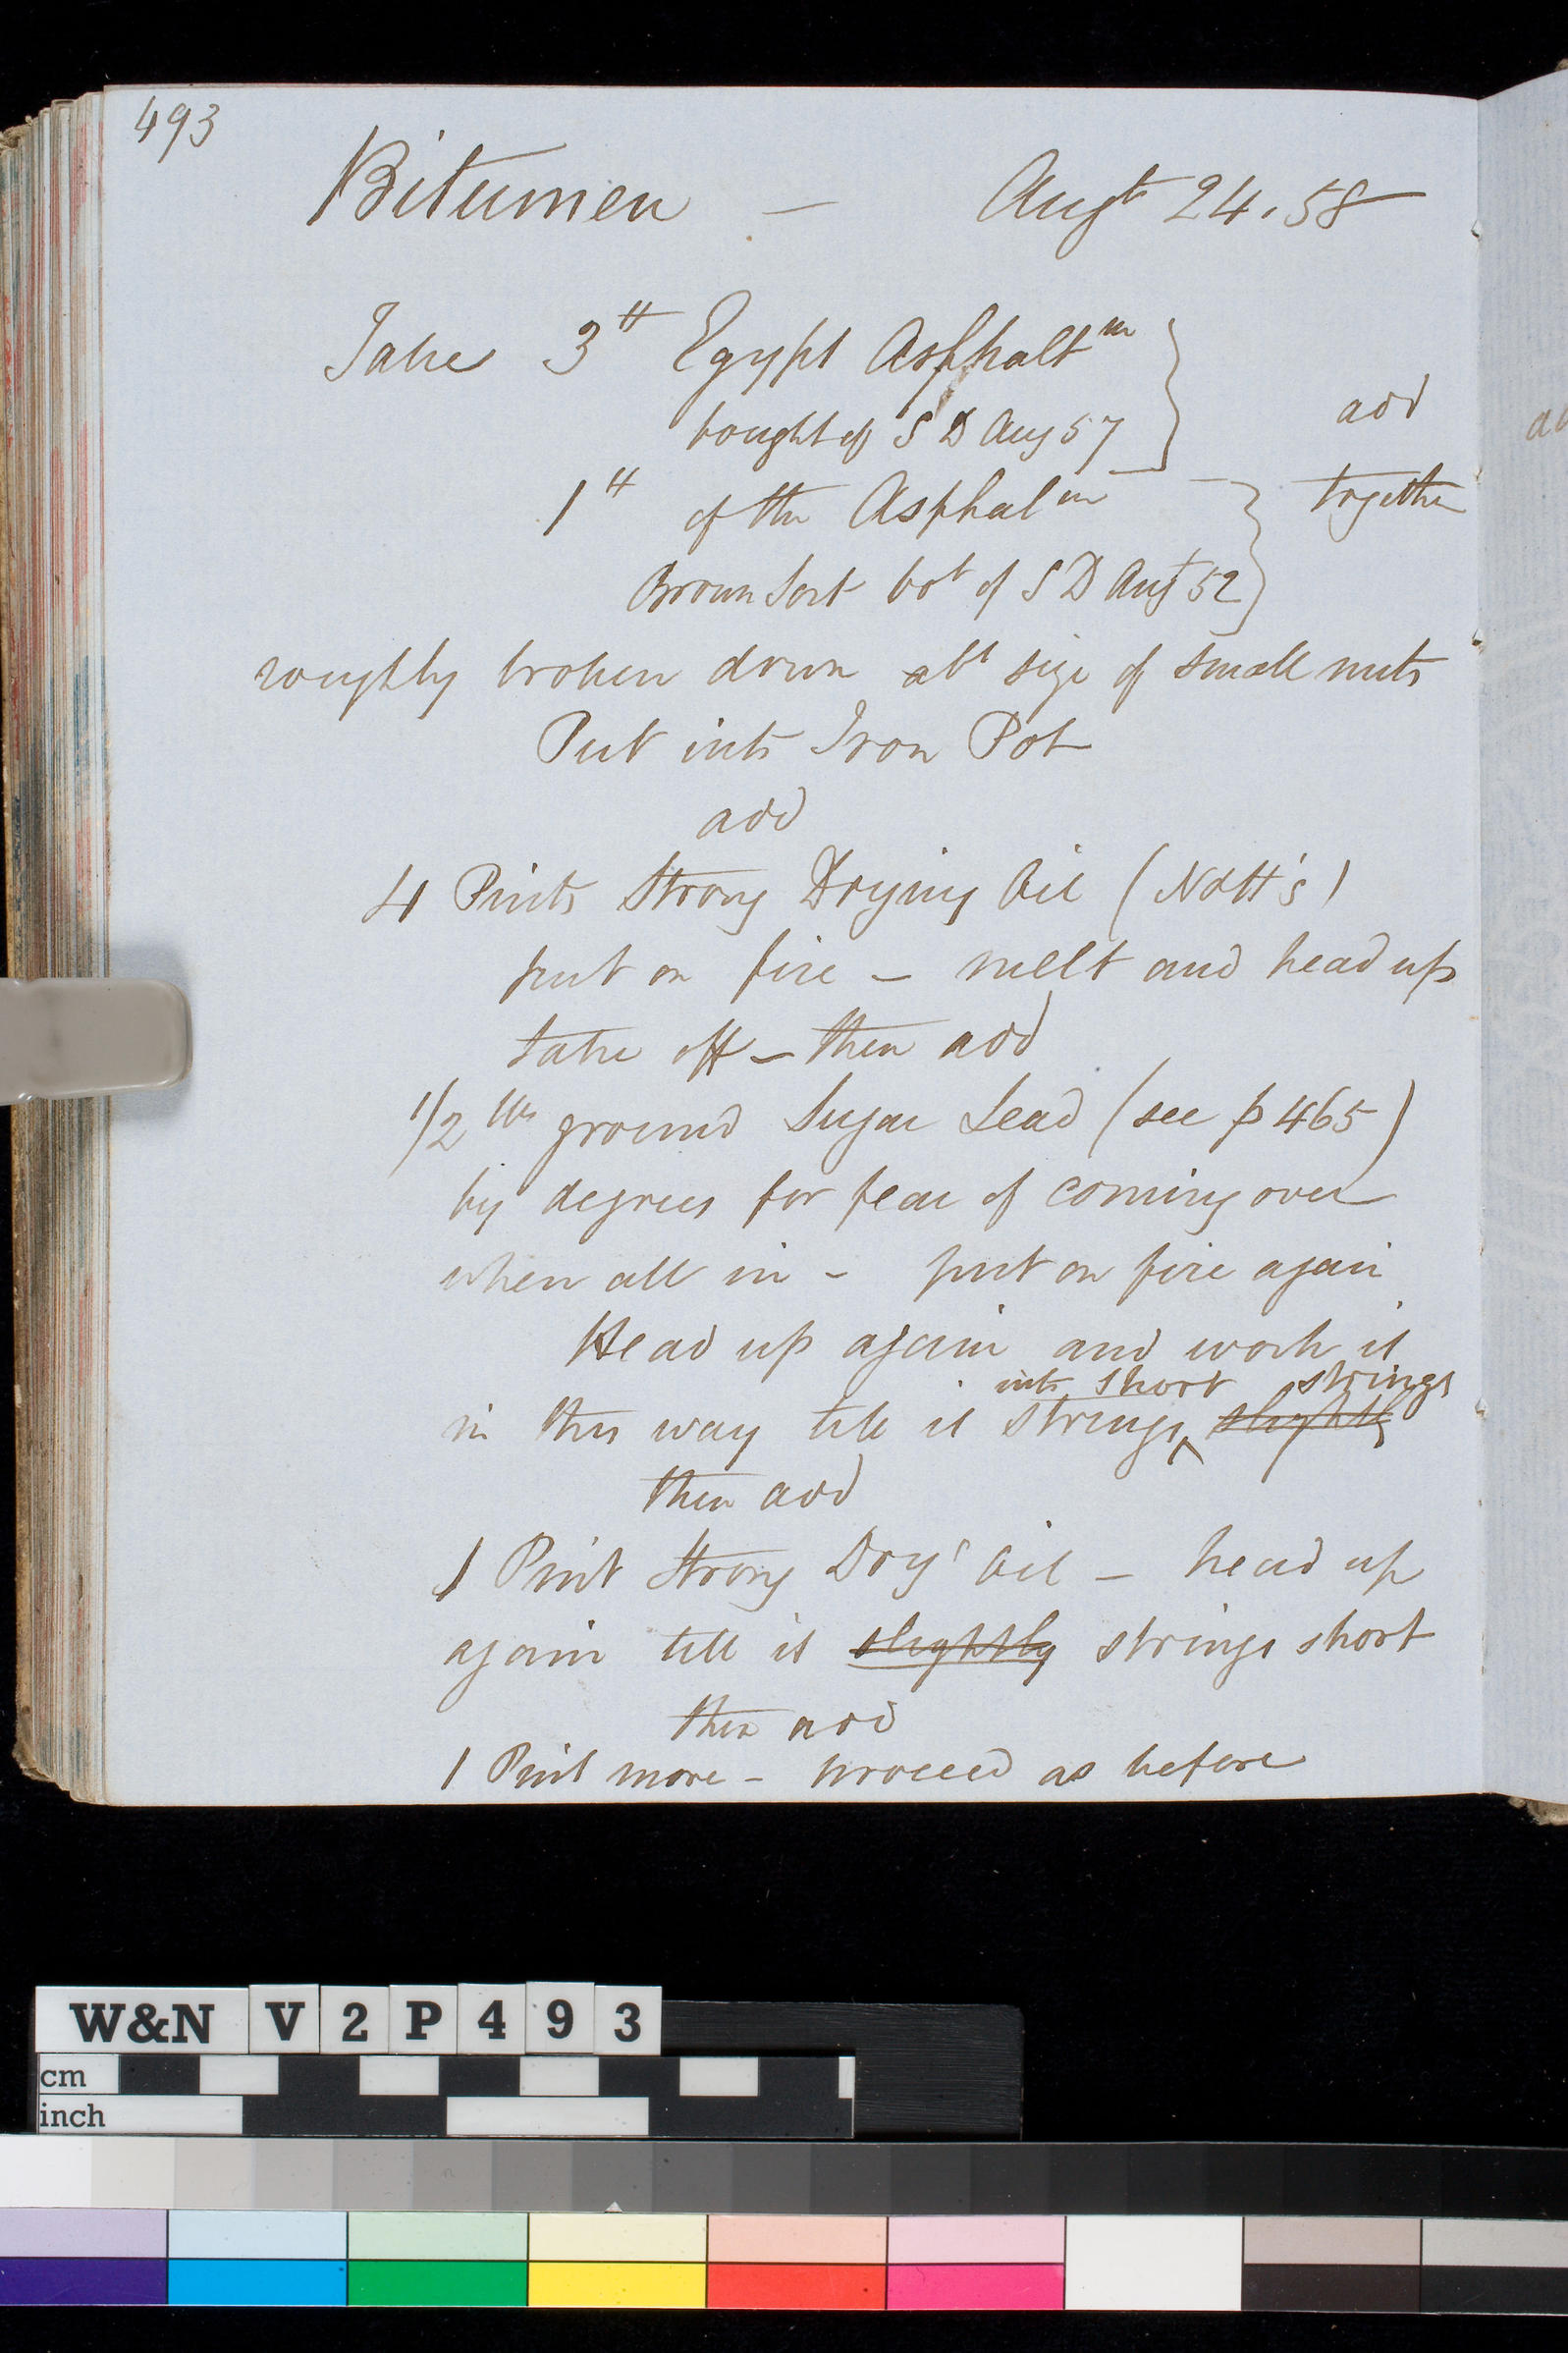 493
Bitumen — Augt 24.58
Take 3 tt Egypt Asphaltm
bought of S D Aug 57
add
1 tt of the Asphalm
together
Brown Sort bot of S D Augt 52
roughly broken down abt size of small nuts
Put into Iron Pot
add
4 Pints Strong Drying Oil (Nott's)
put on fire – melt and head up
take off – then add
1/2 lbs ground Sugar Lead (see p 465)
by degrees for fear of coming over
when all in – put on fire again
Head up again and work it
into short strings
in this way till it strings slightly
then add
1 Pint Strong Dryg Oil – head up
again till it slightly strings short
then add
1 Pint more – proceed as before
W&N V 2 P 4 9 3
cm
inch